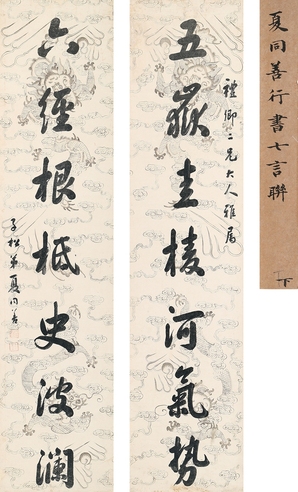 夏同善行書七言聯
下
五嶽圭棱河氣勢
禮卿二兄大人雅屬
六經根柢史波瀾
子松弟夏同善